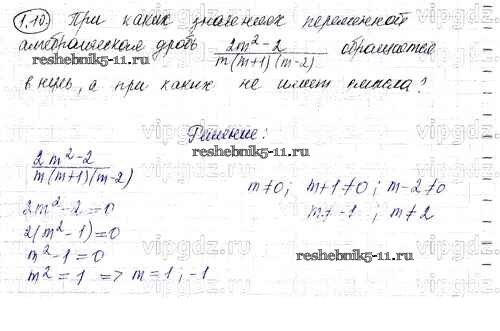 1.10. При каких значениях переменной
алгебраическая дробь (2m²-2)/(m(m+1)(m-2)) обращается
reshebnik5-11.ru
в нуль, а при каких не имеет смысла?
Решение:
reshebnik5-11.ru
(2m²-2)/(m(m+1)(m-2))
m≠0; m+1≠0; m-2≠0
m≠-1; m≠2
2m²-2=0
2(m²-1)=0
m²-1=0
m²=1 => m=1; -1
reshebnik5-11.ru
vipgdz.ru